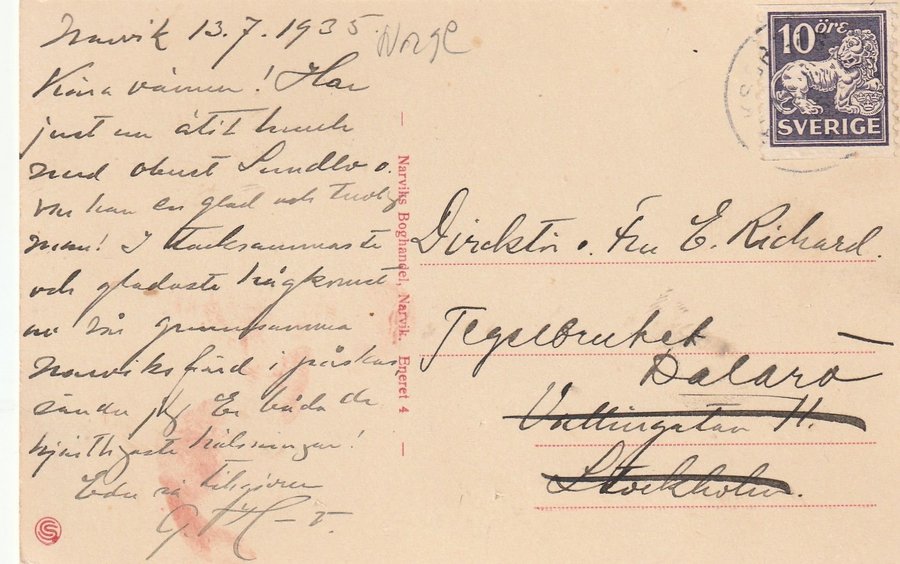 Narvik 13.7.1935.
Norge
Kära vänner! Har
just nu ätit lunch
med oberst Sundlo o.
var han en glad och trevlig
man! I tacksammaste
och gladaste hågkomst
av vår gemensamma
Narviksfärd i påskas
sänder jag Er båda de
hjärtligaste hälsningar!
Eder så tillgivne
G. H-r.
Narviks Boghandel, Narvik. Eneret 4
10 öre
SVERIGE
Direktör o. Fru E. Richard.
Tegelbruket
Dalarö
Wallingatan 11.
Stockholm.